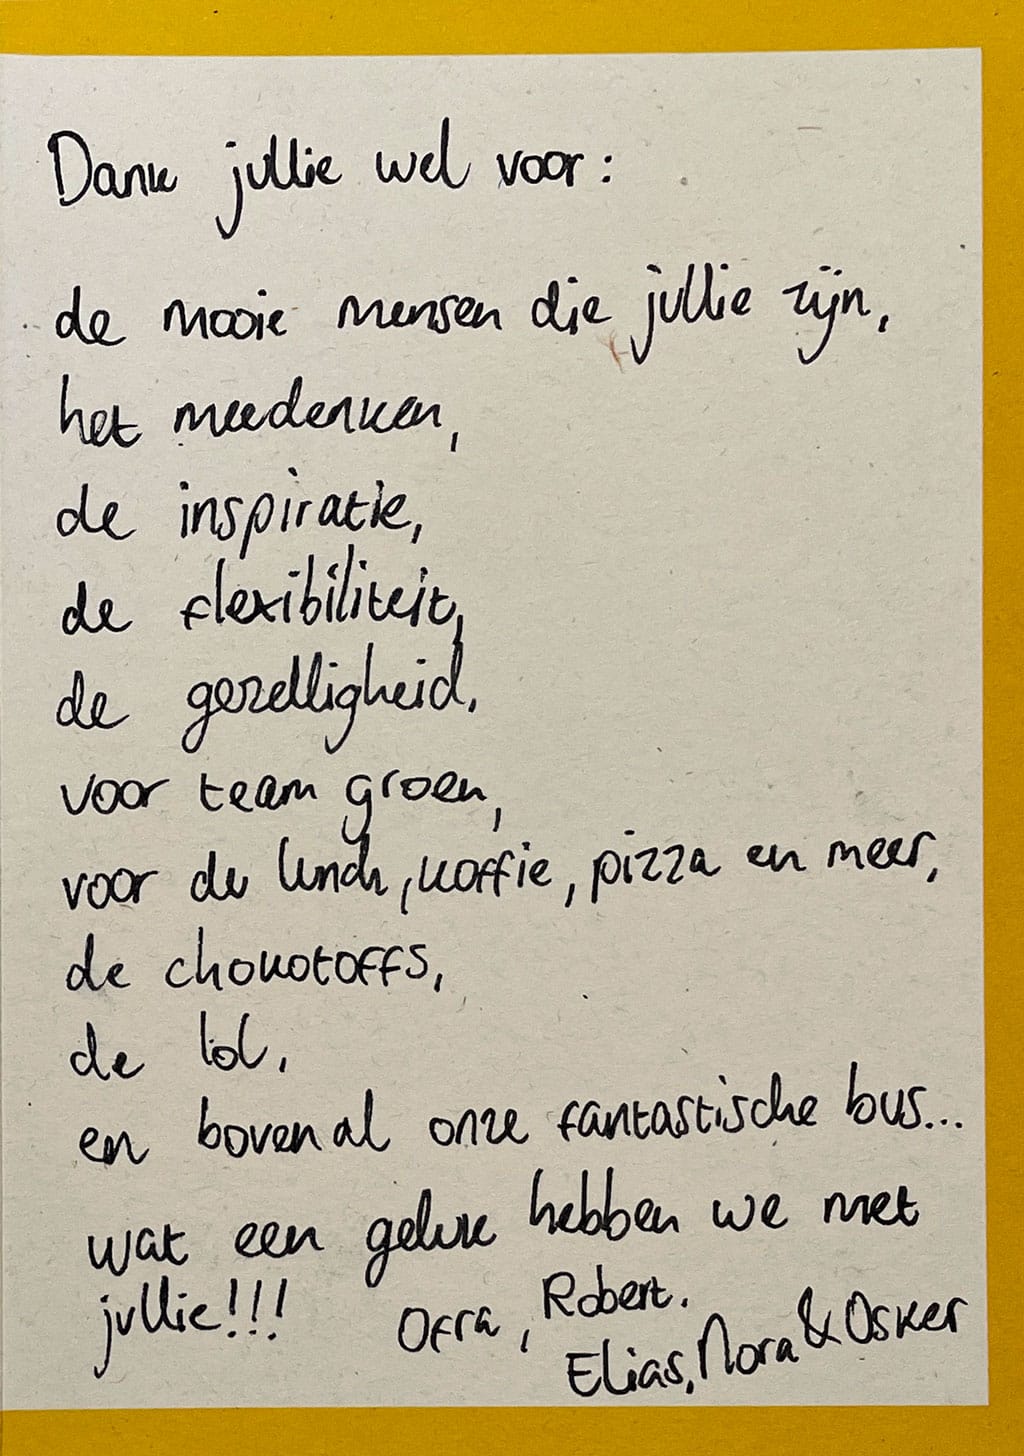 Dank jullie wel voor:
de mooie mensen die jullie zijn,
het meedenken,
de inspiratie,
de flexibiliteit,
de gezelligheid,
voor team groen,
voor de lunch, koffie, pizza en meer,
de chokotoffs,
de lol,
en bovenal onze fantastische bus...
wat een geluk hebben we met
jullie!!!
Ofra, Robert,
Elias, Nora & Osker